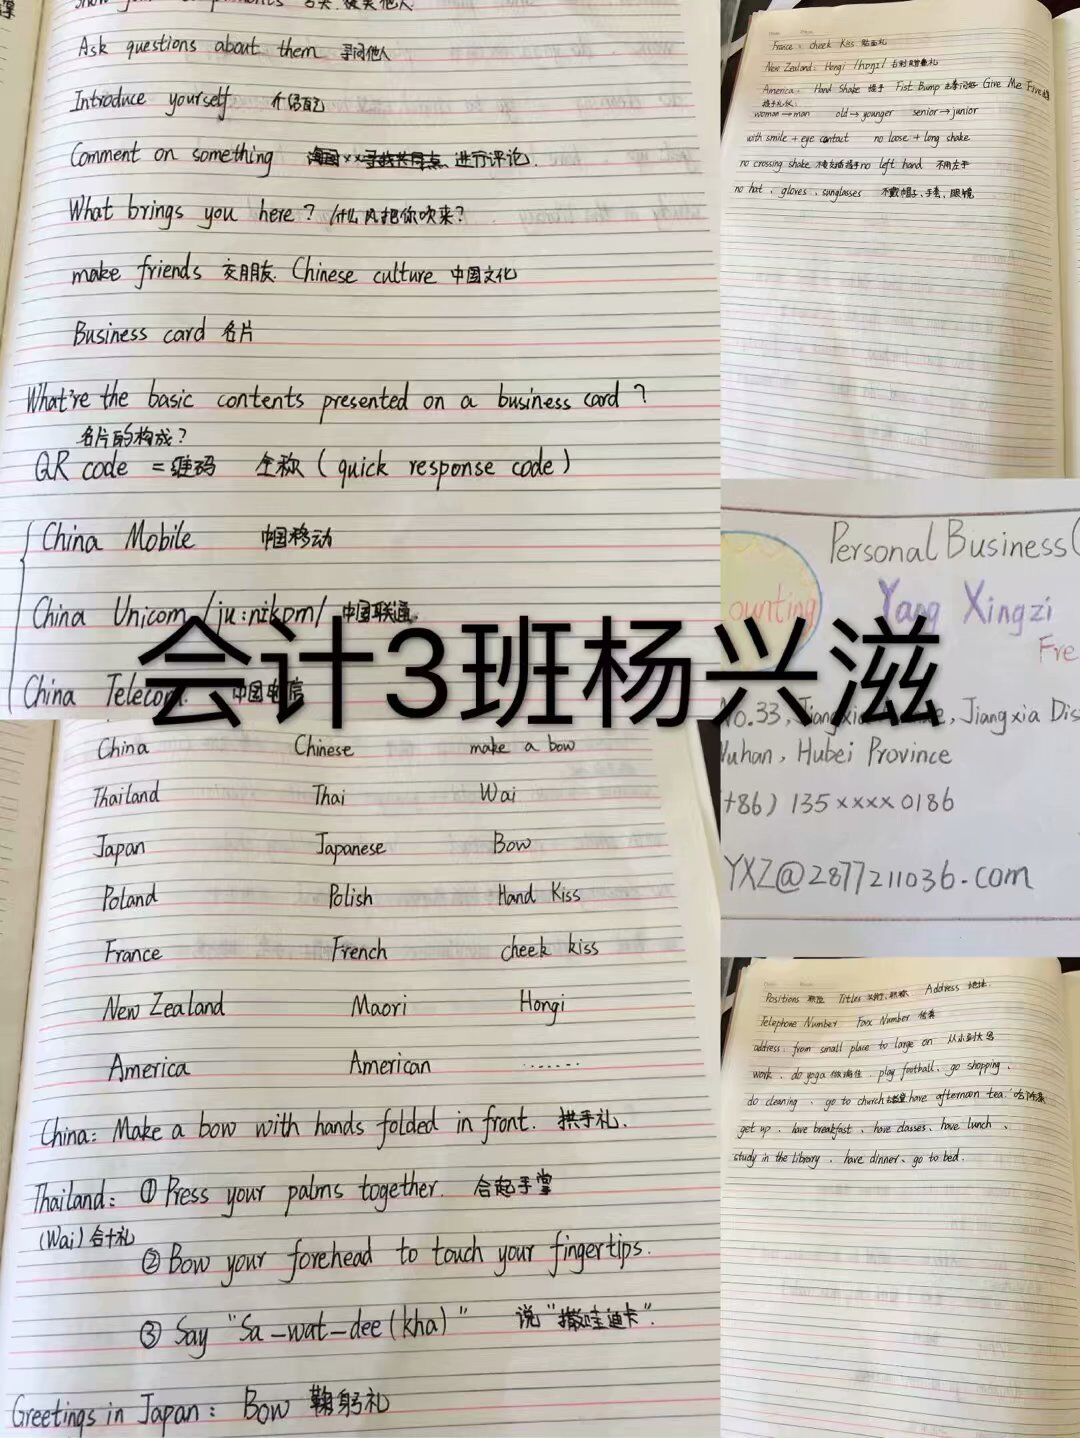 Ask questions about them 寻问他人
Introduce yourself 介绍自己
Comment on something 进行评论.
What brings you here? 什么风把你吹来?
make friends 交朋友. Chinese culture 中国文化
Business card 名片
What're the basic contents presented on a business card?
名片的构成?
QR code = 维码 全称 (quick response code)
China Mobile 中国移动
China Unicom /ju:nikɒm/ 中国联通.
China Telecom. 中国电信
会计3班杨兴滋
China Chinese make a bow
Thailand Thai Wai
Japan Japanese Bow
Poland Polish Hand Kiss
France French cheek kiss
New Zealand Maori Hongi
America American .......
China: Make a bow with hands folded in front. 拱手礼.
Thailand: ① Press your palms together. 合起手掌
(Wai) 合十礼
② Bow your forehead to touch your fingertips.
③ Say "Sa-wat-dee (kha)" 说"撒哇迪卡".
Greetings in Japan: Bow 鞠躬礼
France: cheek kiss 贴面礼
New Zealand: Hongi /hɒŋi/
America: Hand Shake 握手 Fist Bump Give Me Five
握手礼仪:
woman→man old→younger senior→junior
with smile + eye contact no loose + long shake
no crossing shake no left hand 不用左手
no hat, gloves, sunglasses 不戴帽子、手套、眼镜
Personal Business
ounting
Yang Xingzi
Fre
No.33, Jiangxia , Jiangxia Dis
Wuhan, Hubei Province
+86) 135××××0186
YXZ@2877211036.com
Positions 职位 Titles Address 地址.
Telephone Number Fax Number 传真
address: from small place to large on 从小到大写
work、do yoga 做瑜伽、play football、go shopping、
do cleaning、go to church have afternoon tea.
get up、have breakfast、have classes、have lunch、
study in the library、have dinner、go to bed.